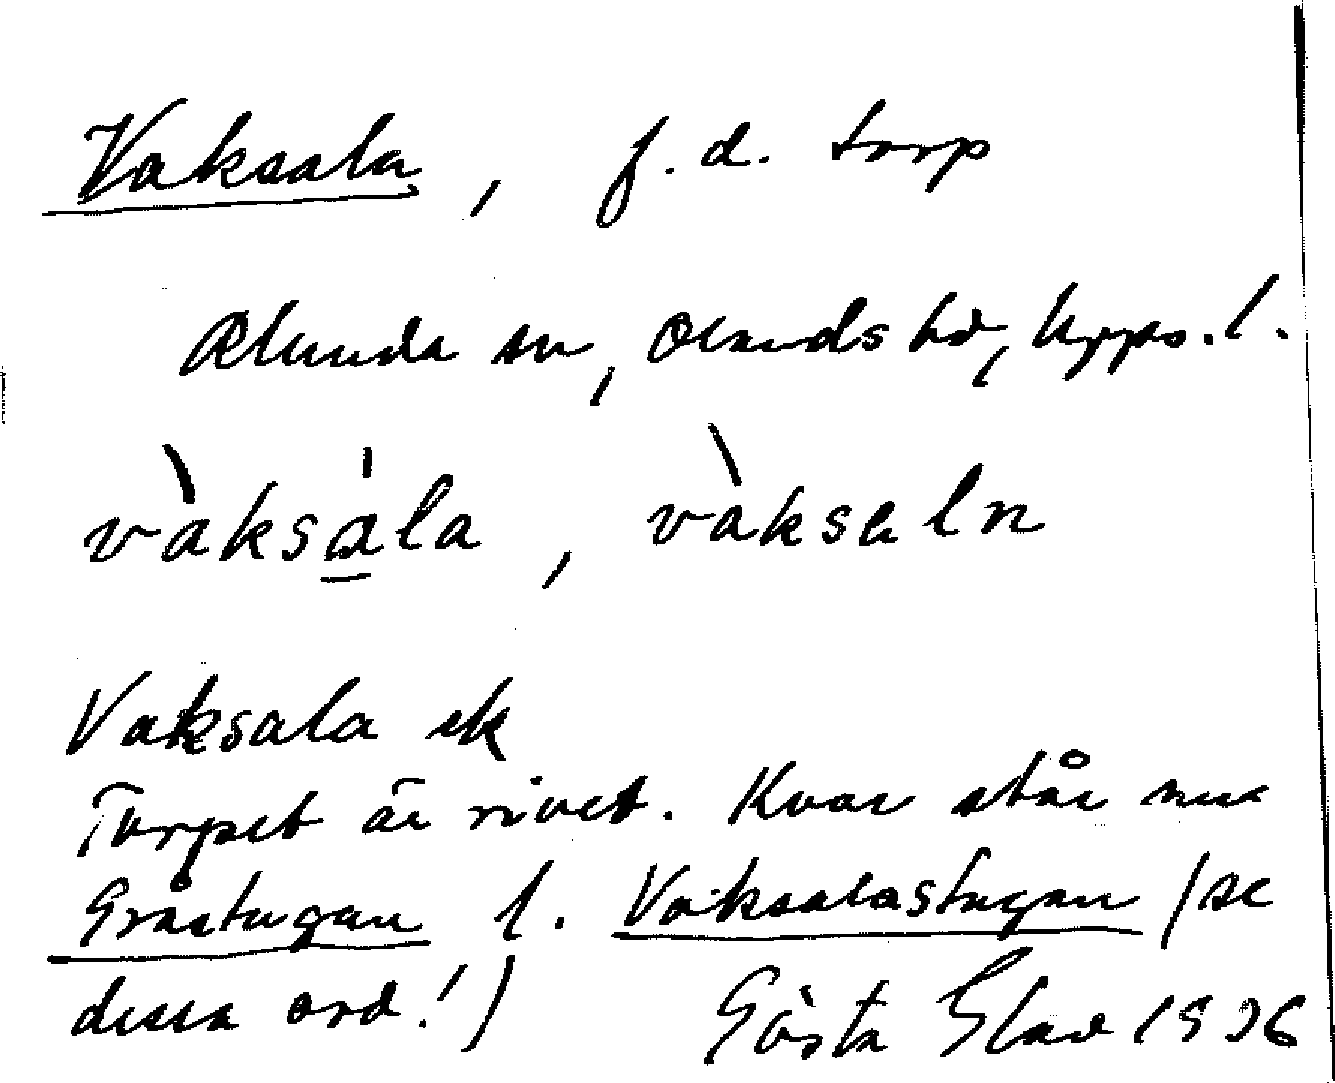 Vaksala, f.d. torp
Alunda sn, Olands hd, Upps. l.
vàksála, vàksaln
Vaksala ek
Torpet är rivet. Kvar står nu
Gråstugan l. Vaksalastugan (se
dessa ord!) Gösta